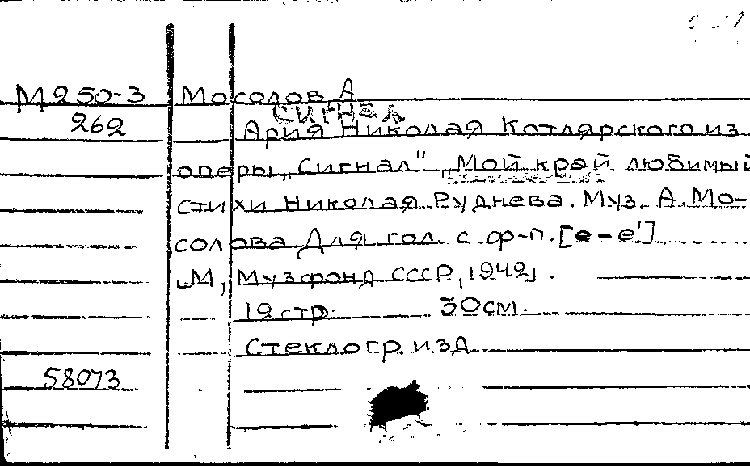 М250-3 Мосолов А
СИГНАЛ
262 Ария Николая Котлярского из
оперы „Сигнал" „Мой край любимый
стихи Николая Руднева. Муз. А. Мо-
солова Для гол. с ф-п. [е-е']
„М, Музфонд СССР, 1942".
12 стр. 30см.
Стеклогр. изд.
58073